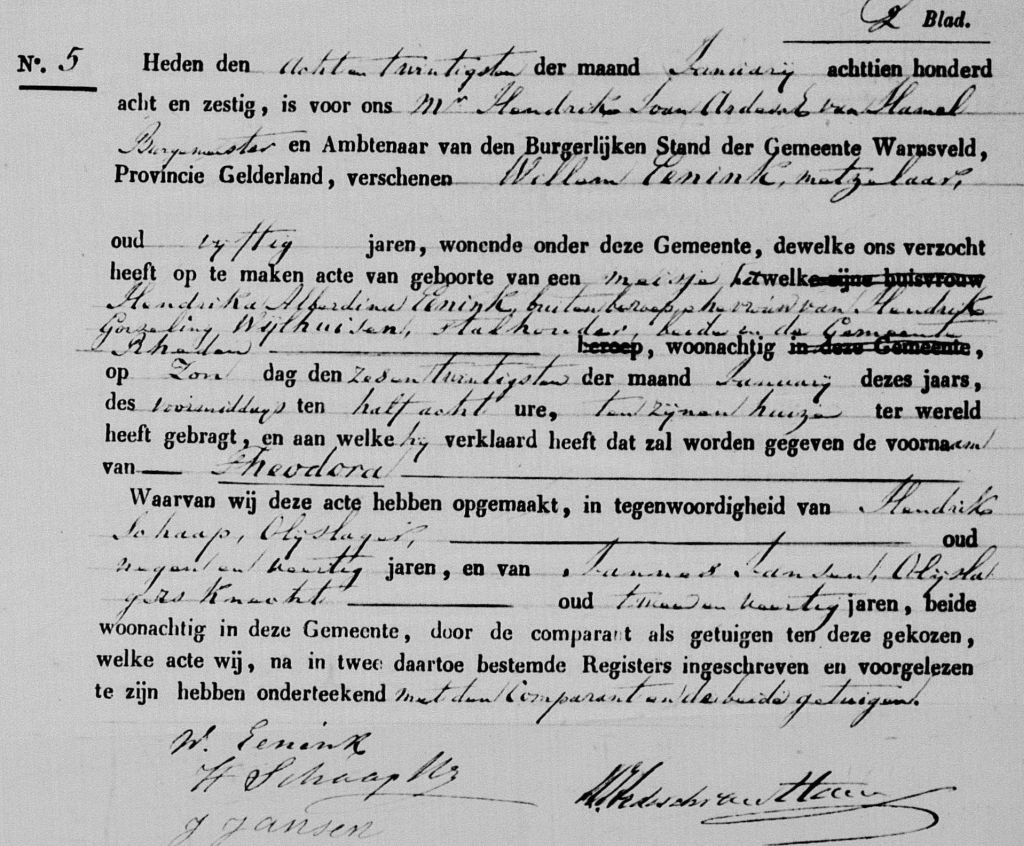 2 Blad.
No. 5 Heden den achtentwintigsten der maand Januarij achttien honderd
acht en zestig, is voor ons Mr. Hendrik Joan van Hamel
Burgemeester en Ambtenaar van den Burgerlijken Stand der Gemeente Warnsveld,
Provincie Gelderland, verschenen Willem Eenink, metzelaar,
oud vijftig jaren, wonende onder deze Gemeente, dewelke ons verzocht
heeft op te maken acte van geboorte van een meisje hetwelk zijne huisvrouw
Hendrika Alberdina Eenink, buiten beroep, ehevrouw van Hendrik
Gorzeling Wijlhuisen, stalhouder, beide in de Gemeente
Rheden beroep, woonachtig in deze Gemeente,
op Zon dag den zesentwintigsten der maand Januarij dezes jaars,
des voormiddags ten half acht ure, ten zijnen huize ter wereld
heeft gebragt, en aan welke hij verklaard heeft dat zal worden gegeven de voornaam
van Theodora
Waarvan wij deze acte hebben opgemaakt, in tegenwoordigheid van Hendrik
Schaap, Olijslager, oud
negen en veertig jaren, en van Jannes Jansen, Olijsla
gers Knecht oud twee en veertig jaren, beide
woonachtig in deze Gemeente, door de comparant als getuigen ten deze gekozen,
welke acte wij, na in twee daartoe bestemde Registers ingeschreven en voorgelezen
te zijn hebben onderteekend met den Comparant en de beide getuigen.
W. Eenink
H Schaap Hz
J Jansen